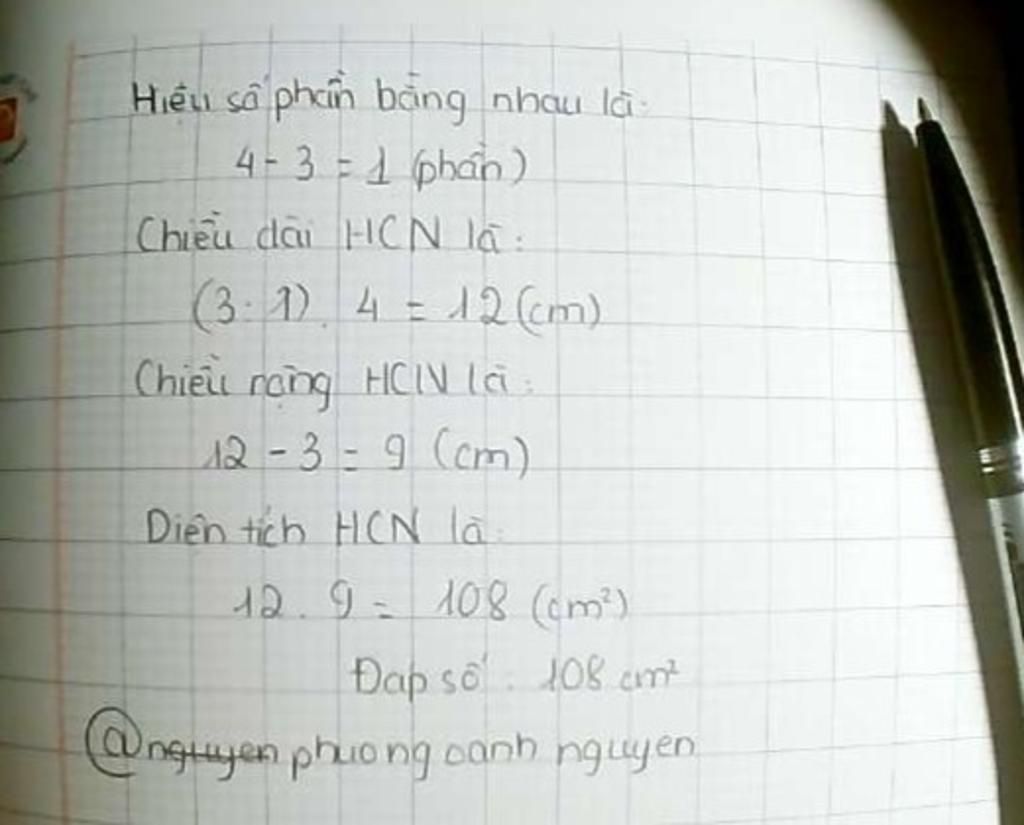 Hiệu số phần bằng nhau là:
4 - 3 = 1 (phần)
Chiều dài HCN là:
(3 : 1) . 4 = 12 (cm)
Chiều rộng HCN là:
12 - 3 = 9 (cm)
Diện tích HCN là:
12 . 9 = 108 (cm²)
Đáp số : 108 cm²
@nguyen phuong oanh nguyen